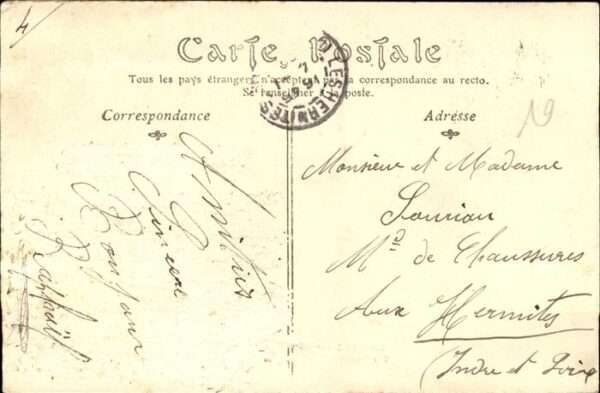 4
Carte Postale
Tous les pays étrangers n'acceptent pas la correspondance au recto.
Se renseigner à la poste.
LES HERMITES
Correspondance
Adresse
19
Amitiés
Sincère
Bonjour
Raphaël
Monsieur et Madame
Md de Chaussures
Aux Hermites
Indre et Loire